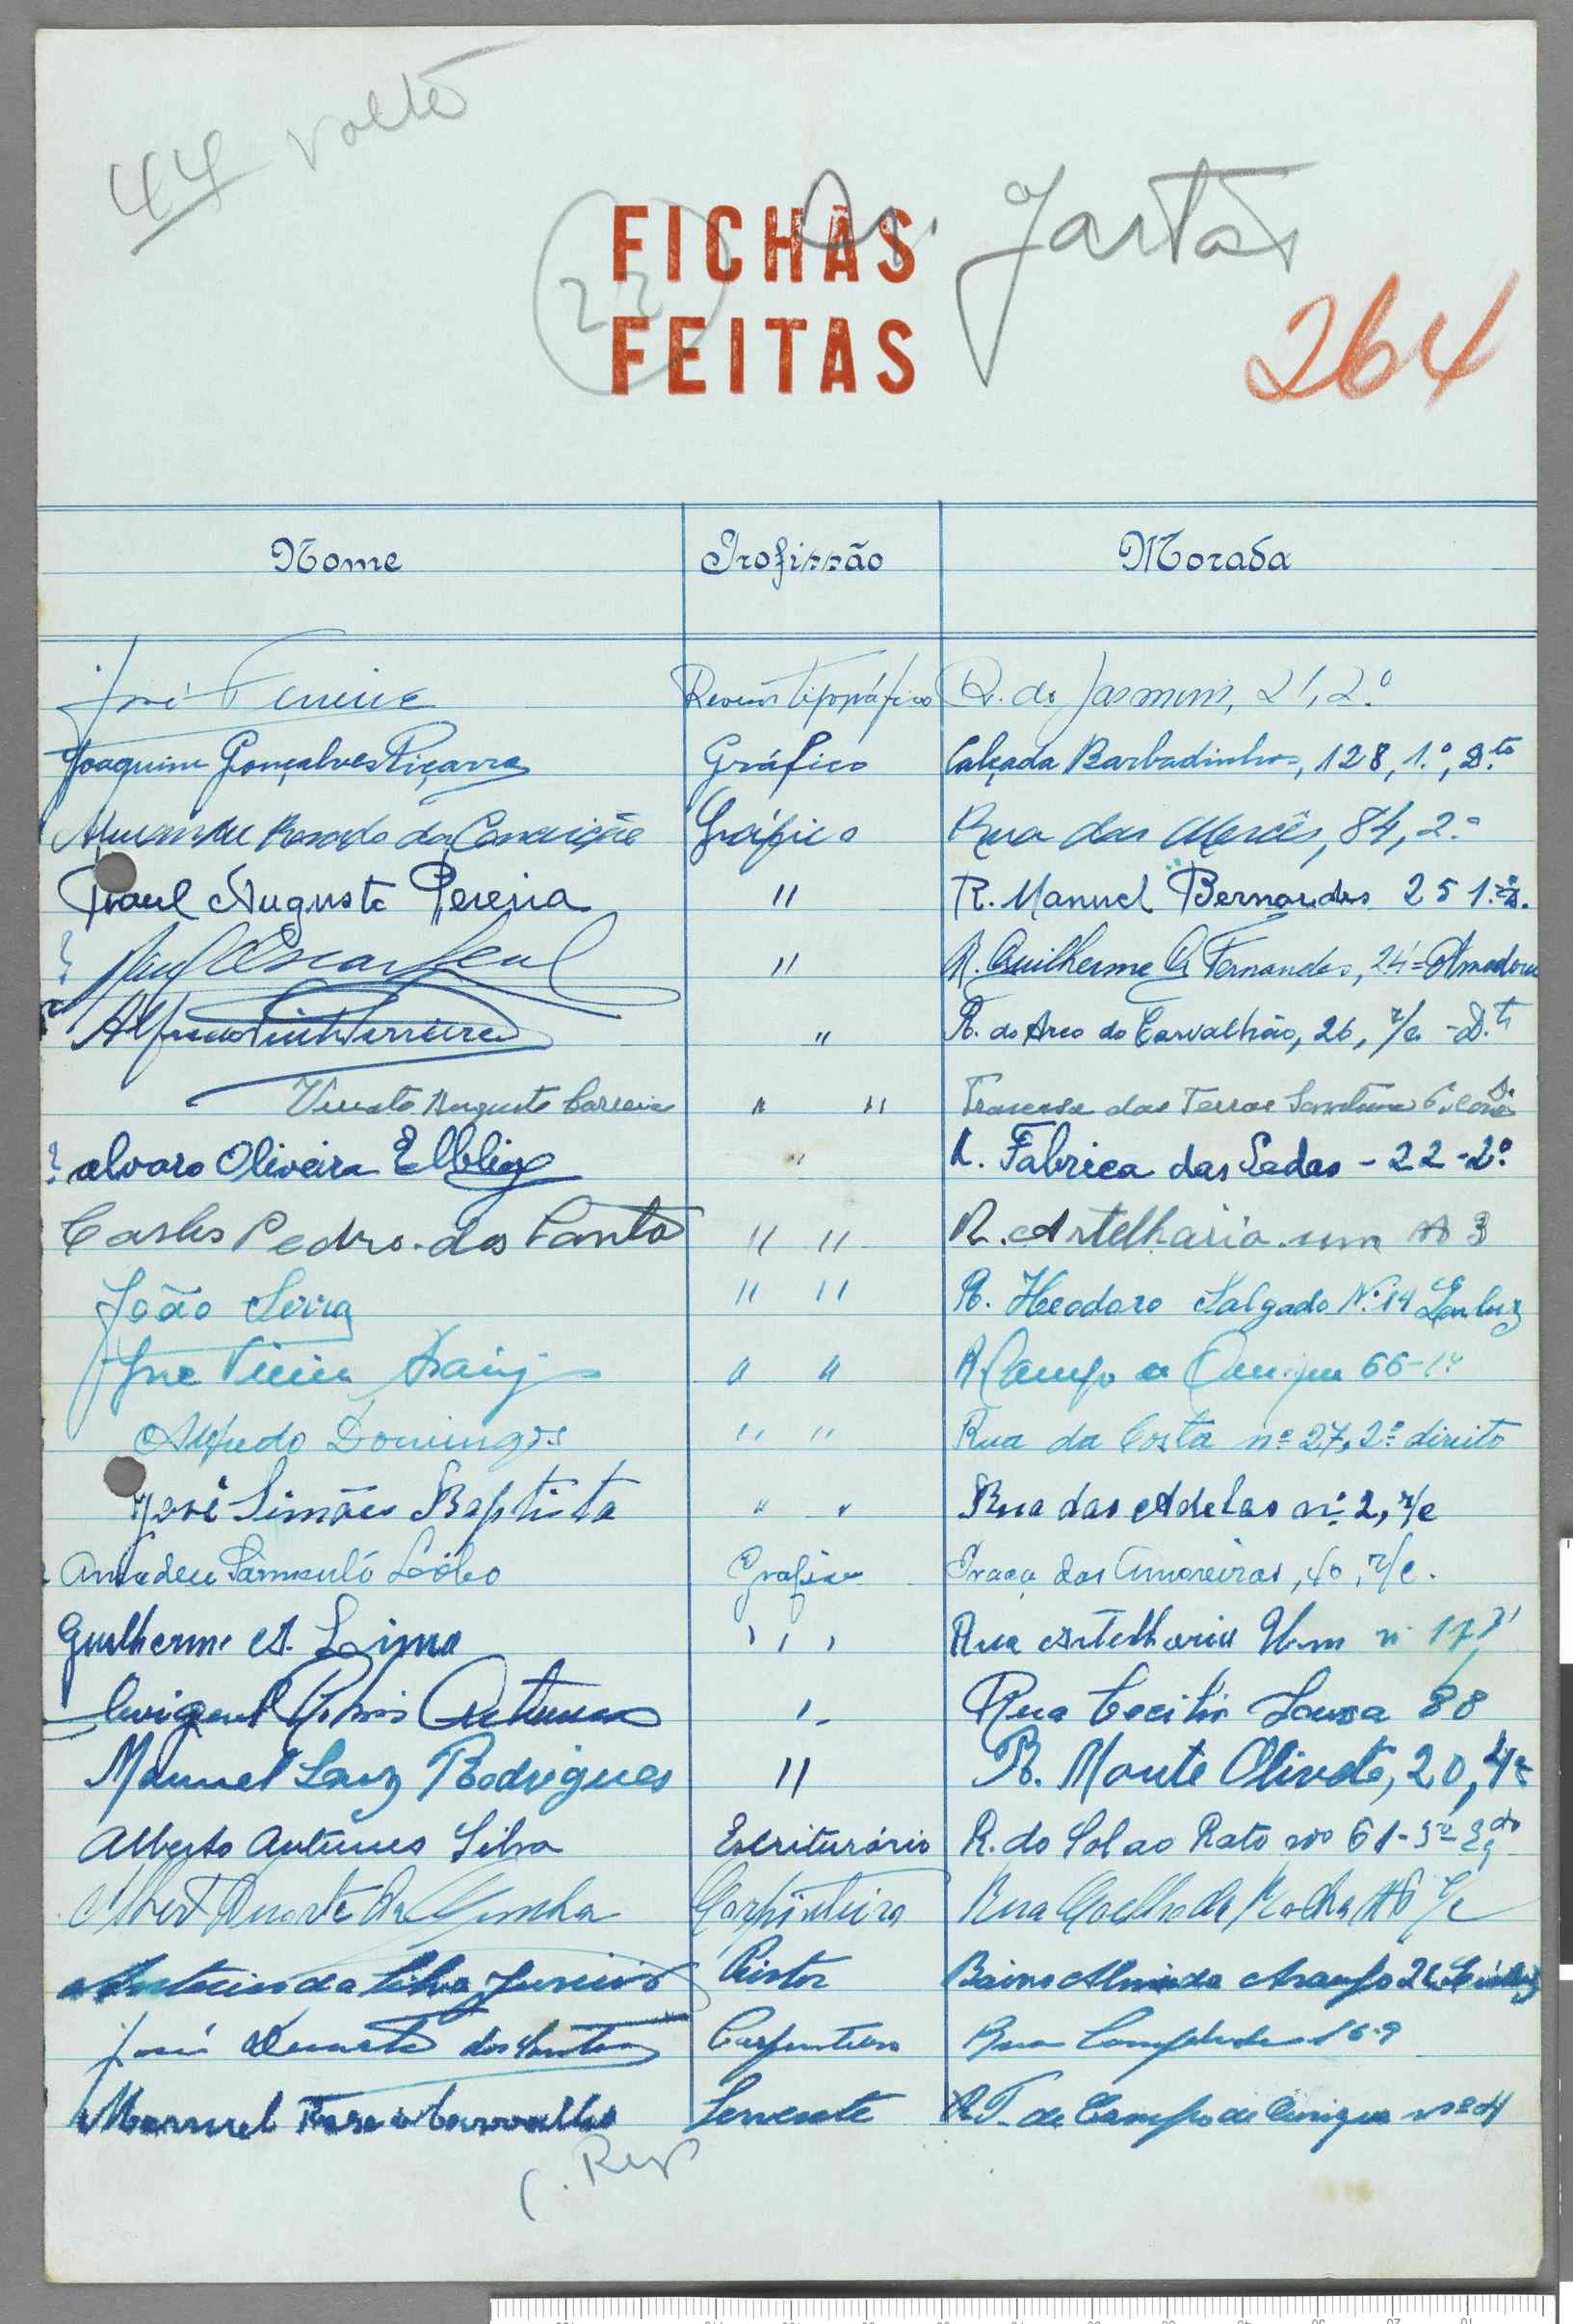 44 volto
22
FICHAS
FEITAS
264
Nome Profissão Morada
José Revisor tipográfico R. do Jasmim, 21, 2.º
Joaquim Gonçalves Piçarra Gráfico Calçada Barbadinhos, 128, 1.º, D.to
da Conceição Gráfico Rua das Mercês, 84, 2.º
Raul Augusto Pereira " R. Manuel Bernardes 25 1.º D.
" R. Guilherme G Fernandes, 24 = Amadora
Alfredo Ferreira " R. do Arco do Carvalhão, 26, r/c - D.to
Augusto Correia " " Travessa das Terras
? alvaro Oliveira " R. Fabrica das Sedas - 22 - 2º
Carlos Pedro dos Santos " " R. Artelharia um 3
João Serra " " R. Heodoro Salgado Nº 14
José Vieira " " R Campo Ourique 66-1º
Alfredo Domingos " " Rua da Costa nº 27, 2º direito
José Simões Baptista " " Rua das Adelas nº 2, r/c
Amadeu Sarmento Lobo Grafico Praça das Amoreiras, 40, r/c.
Guilherme A. Lima " Rua Artelharia Um n 17
Antunes " Rua Cecilio Sousa 88
Manuel Rodrigues " R. Monte Olivete, 20, 4º
Alberto Antunes Silva Escriturário R. do Sol ao Rato nº 61-
Albert Duarte da Cunha Carpinteiro Rua Coelho da Rocha r/c
da Silva Pintor Bairro Almeida Araujo
José Duarte dos Santos Carpinteiro Rua
Manuel Carvalho Servente de Campo de Ourique